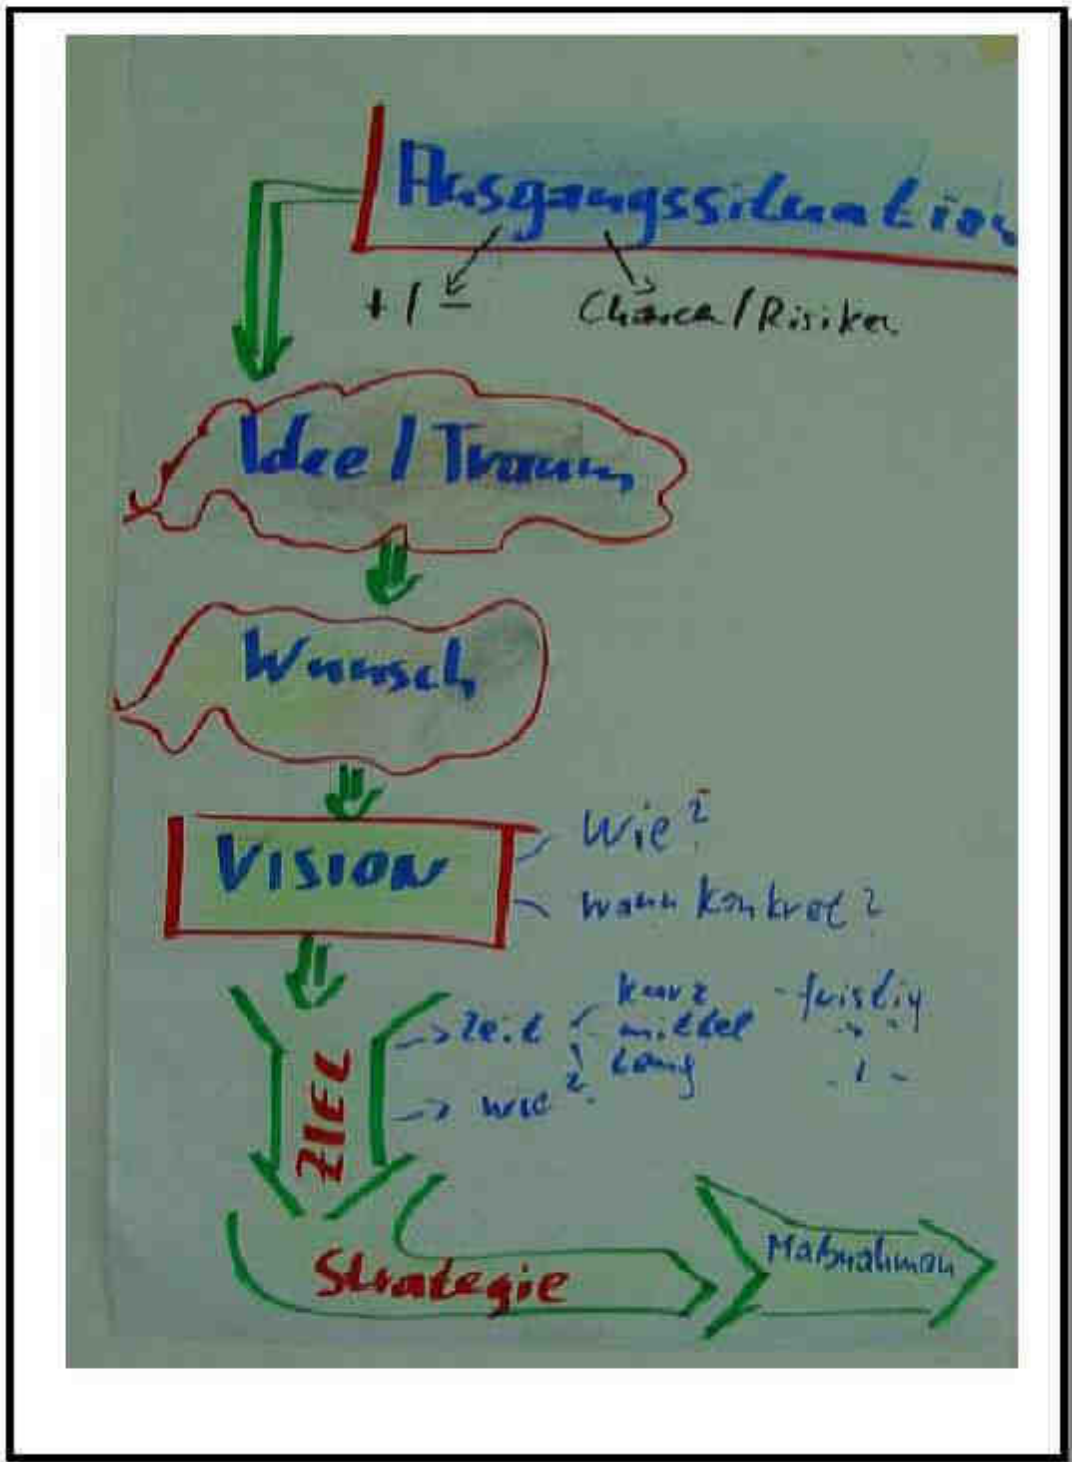 Ausgangssituation
+ / -
Chancen / Risiken
Idee / Traum
Wunsch
VISION
Wie?
wann konkret?
ZIEL
Zeit
kurz - fristig
mittel " "
lang - " -
wie?
Strategie
Maßnahmen